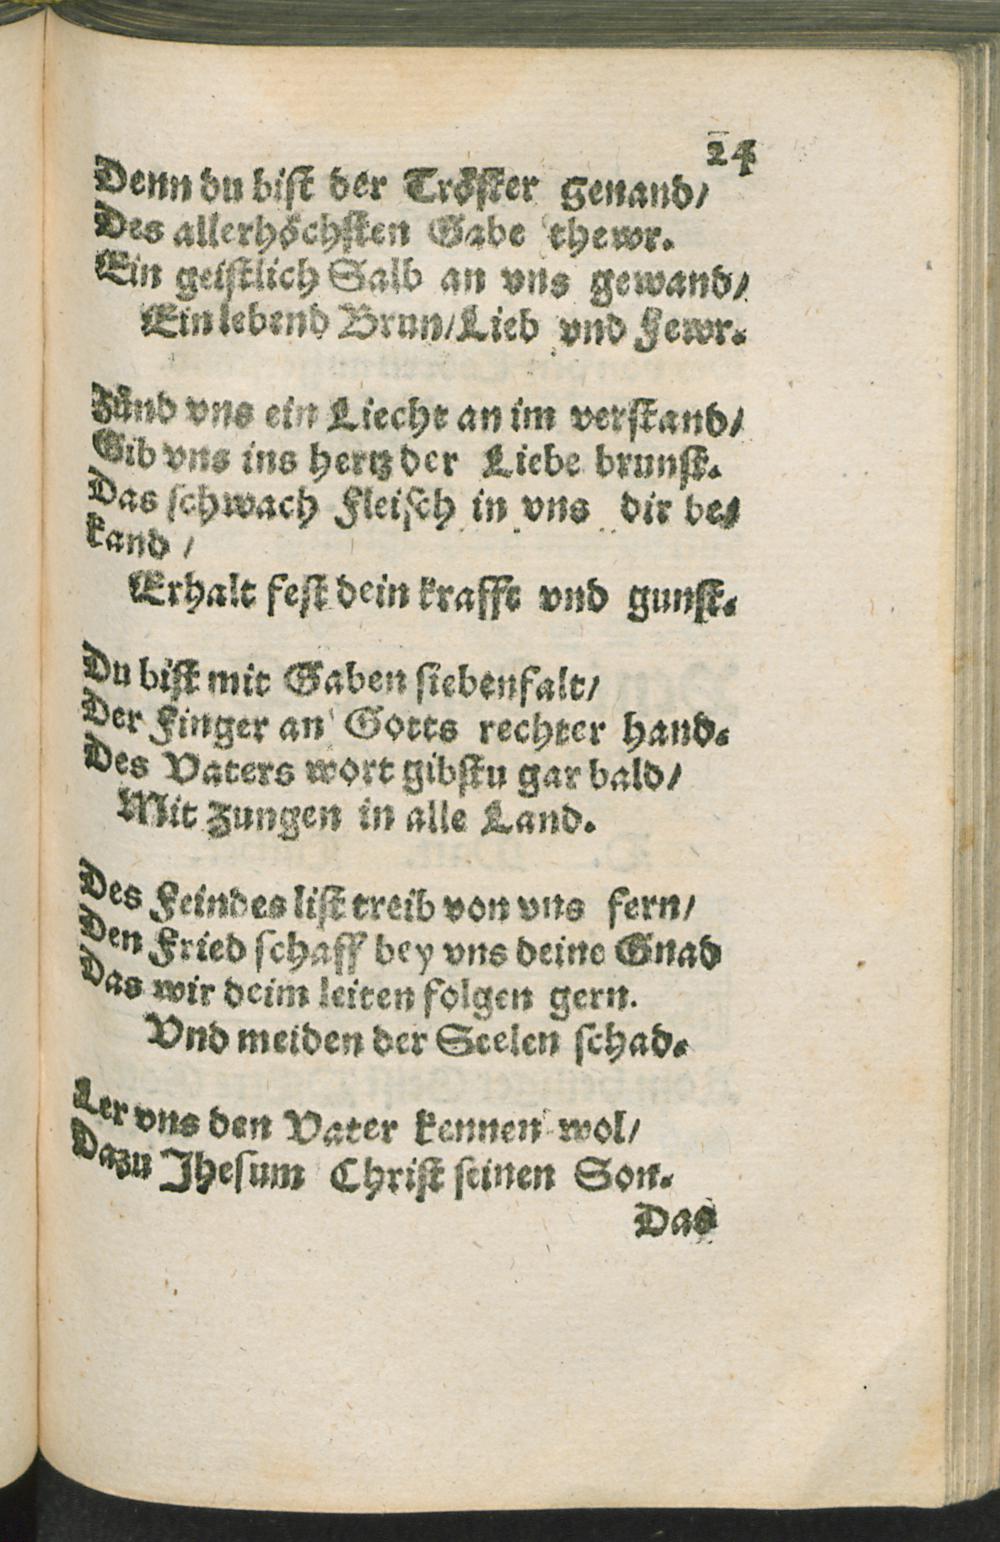 24
Denn du biſt der Tröſter genand/
Des allerhöchſten Gabe thewr.
Ein geiſtlich Salb an vns gewand/
Ein lebend Brun/Lieb vnd Fewr.
Zünd vns ein Liecht an im verſtand/
Gib vns ins hertz der Liebe brunſt.
Das ſchwach Fleiſch in vns dir be⸗
kand /
Erhalt feſt dein krafft vnd gunſt.
Du biſt mit Gaben ſiebenfalt/
Der Finger an Gotts rechter hand.
Des Vaters wort gibſtu gar bald/
Mit zungen in alle Land.
Des Feindes liſt treib von vns fern/
Den Fried ſchaff bey vns deine Gnad
Das wir deim leiten folgen gern.
Vnd meiden der Seelen ſchad.
Ler vns den Vater kennen wol/
Dazu Jheſum Chriſt ſeinen Son.
Das